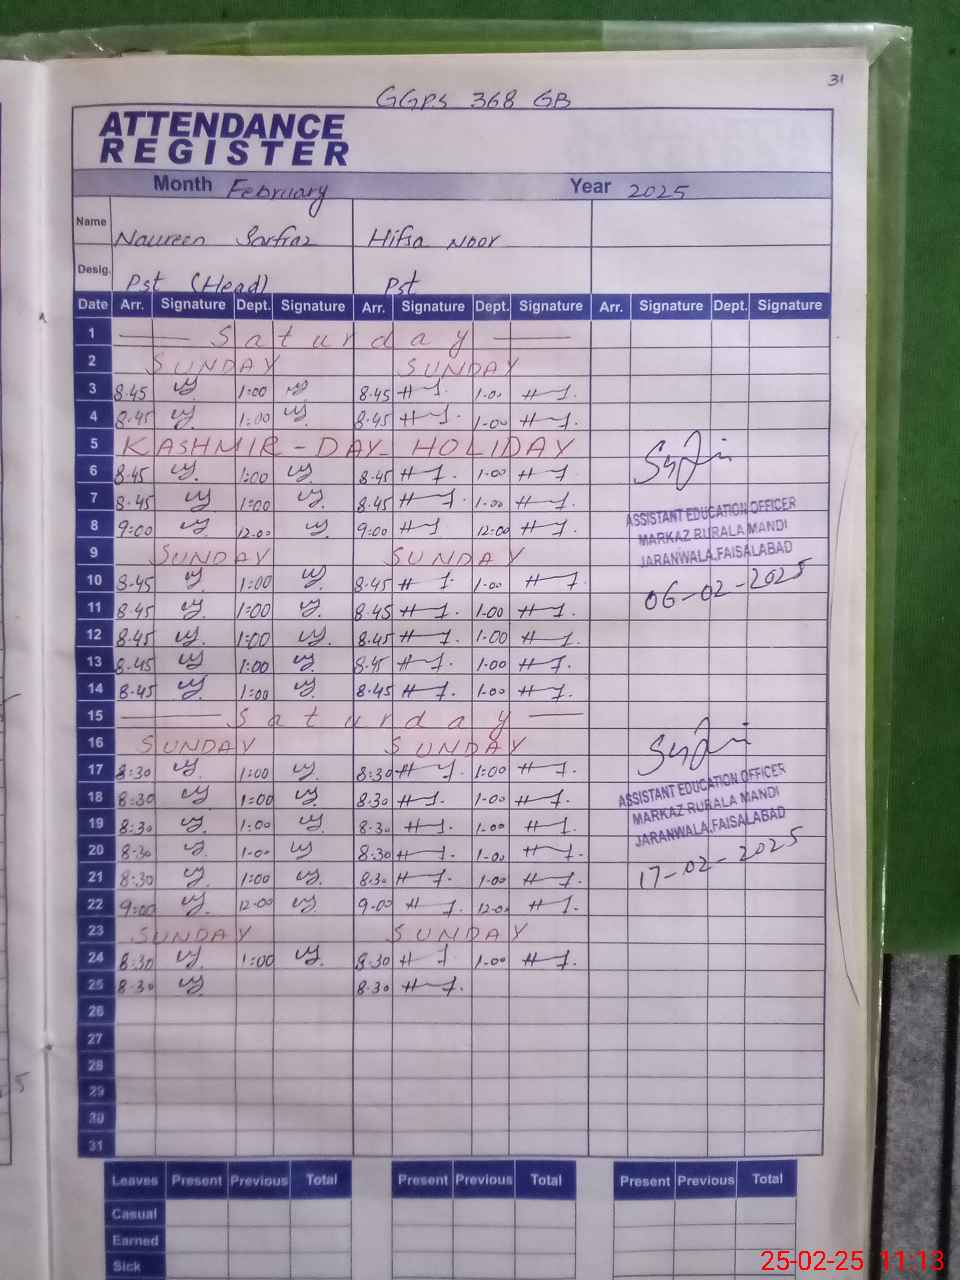 31
GGPS 368 GB
ATTENDANCE
REGISTER
Month February Year 2025
Name Naureen Sarfraz Hifsa Noor
Desig. Pst (Head) Pst
Date Arr. Signature Dept. Signature Arr. Signature Dept. Signature Arr. Signature Dept. Signature
1 Saturday
2 SUNDAY SUNDAY
3 8.45 1:00 8.45 1.00
4 8.45 1:00 8.45 1.00
5 KASHMIR-DAY- HOLIDAY
6 8.45 1:00 8.45 1.00
7 8.45 1:00 8.45 1.00
8 9:00 12.00 9:00 12:00
9 SUNDAY SUNDAY
10 8.45 1:00 8.45 1.00
11 8.45 1:00 8.45 1.00
12 8.45 1:00 8.45 1.00
13 8.45 1:00 8.45 1.00
14 8.45 1:00 8.45 1.00
15 Saturday
16 SUNDAY SUNDAY
17 8:30 1:00 8:30 1:00
18 8:30 1:00 8:30 1.00
19 8:30 1:00 8:30 1.00
20 8:30 1.00 8:30 1.00
21 8:30 1:00 8:30 1.00
22 9:00 12.00 9.00 12.00
23 SUNDAY SUNDAY
24 8:30 1:00 8:30 1.00
25 8.30 8.30
26
27
28
29
30
31
ASSISTANT EDUCATION OFFICER
MARKAZ RURALA MANDI
JARANWALA.FAISALABAD
06-02-2025
ASSISTANT EDUCATION OFFICER
MARKAZ RURALA MANDI
JARANWALA.FAISALABAD
17-02-2025
Leaves Present Previous Total Present Previous Total Present Previous Total
Casual
Earned
Sick
25-02-25 11:13